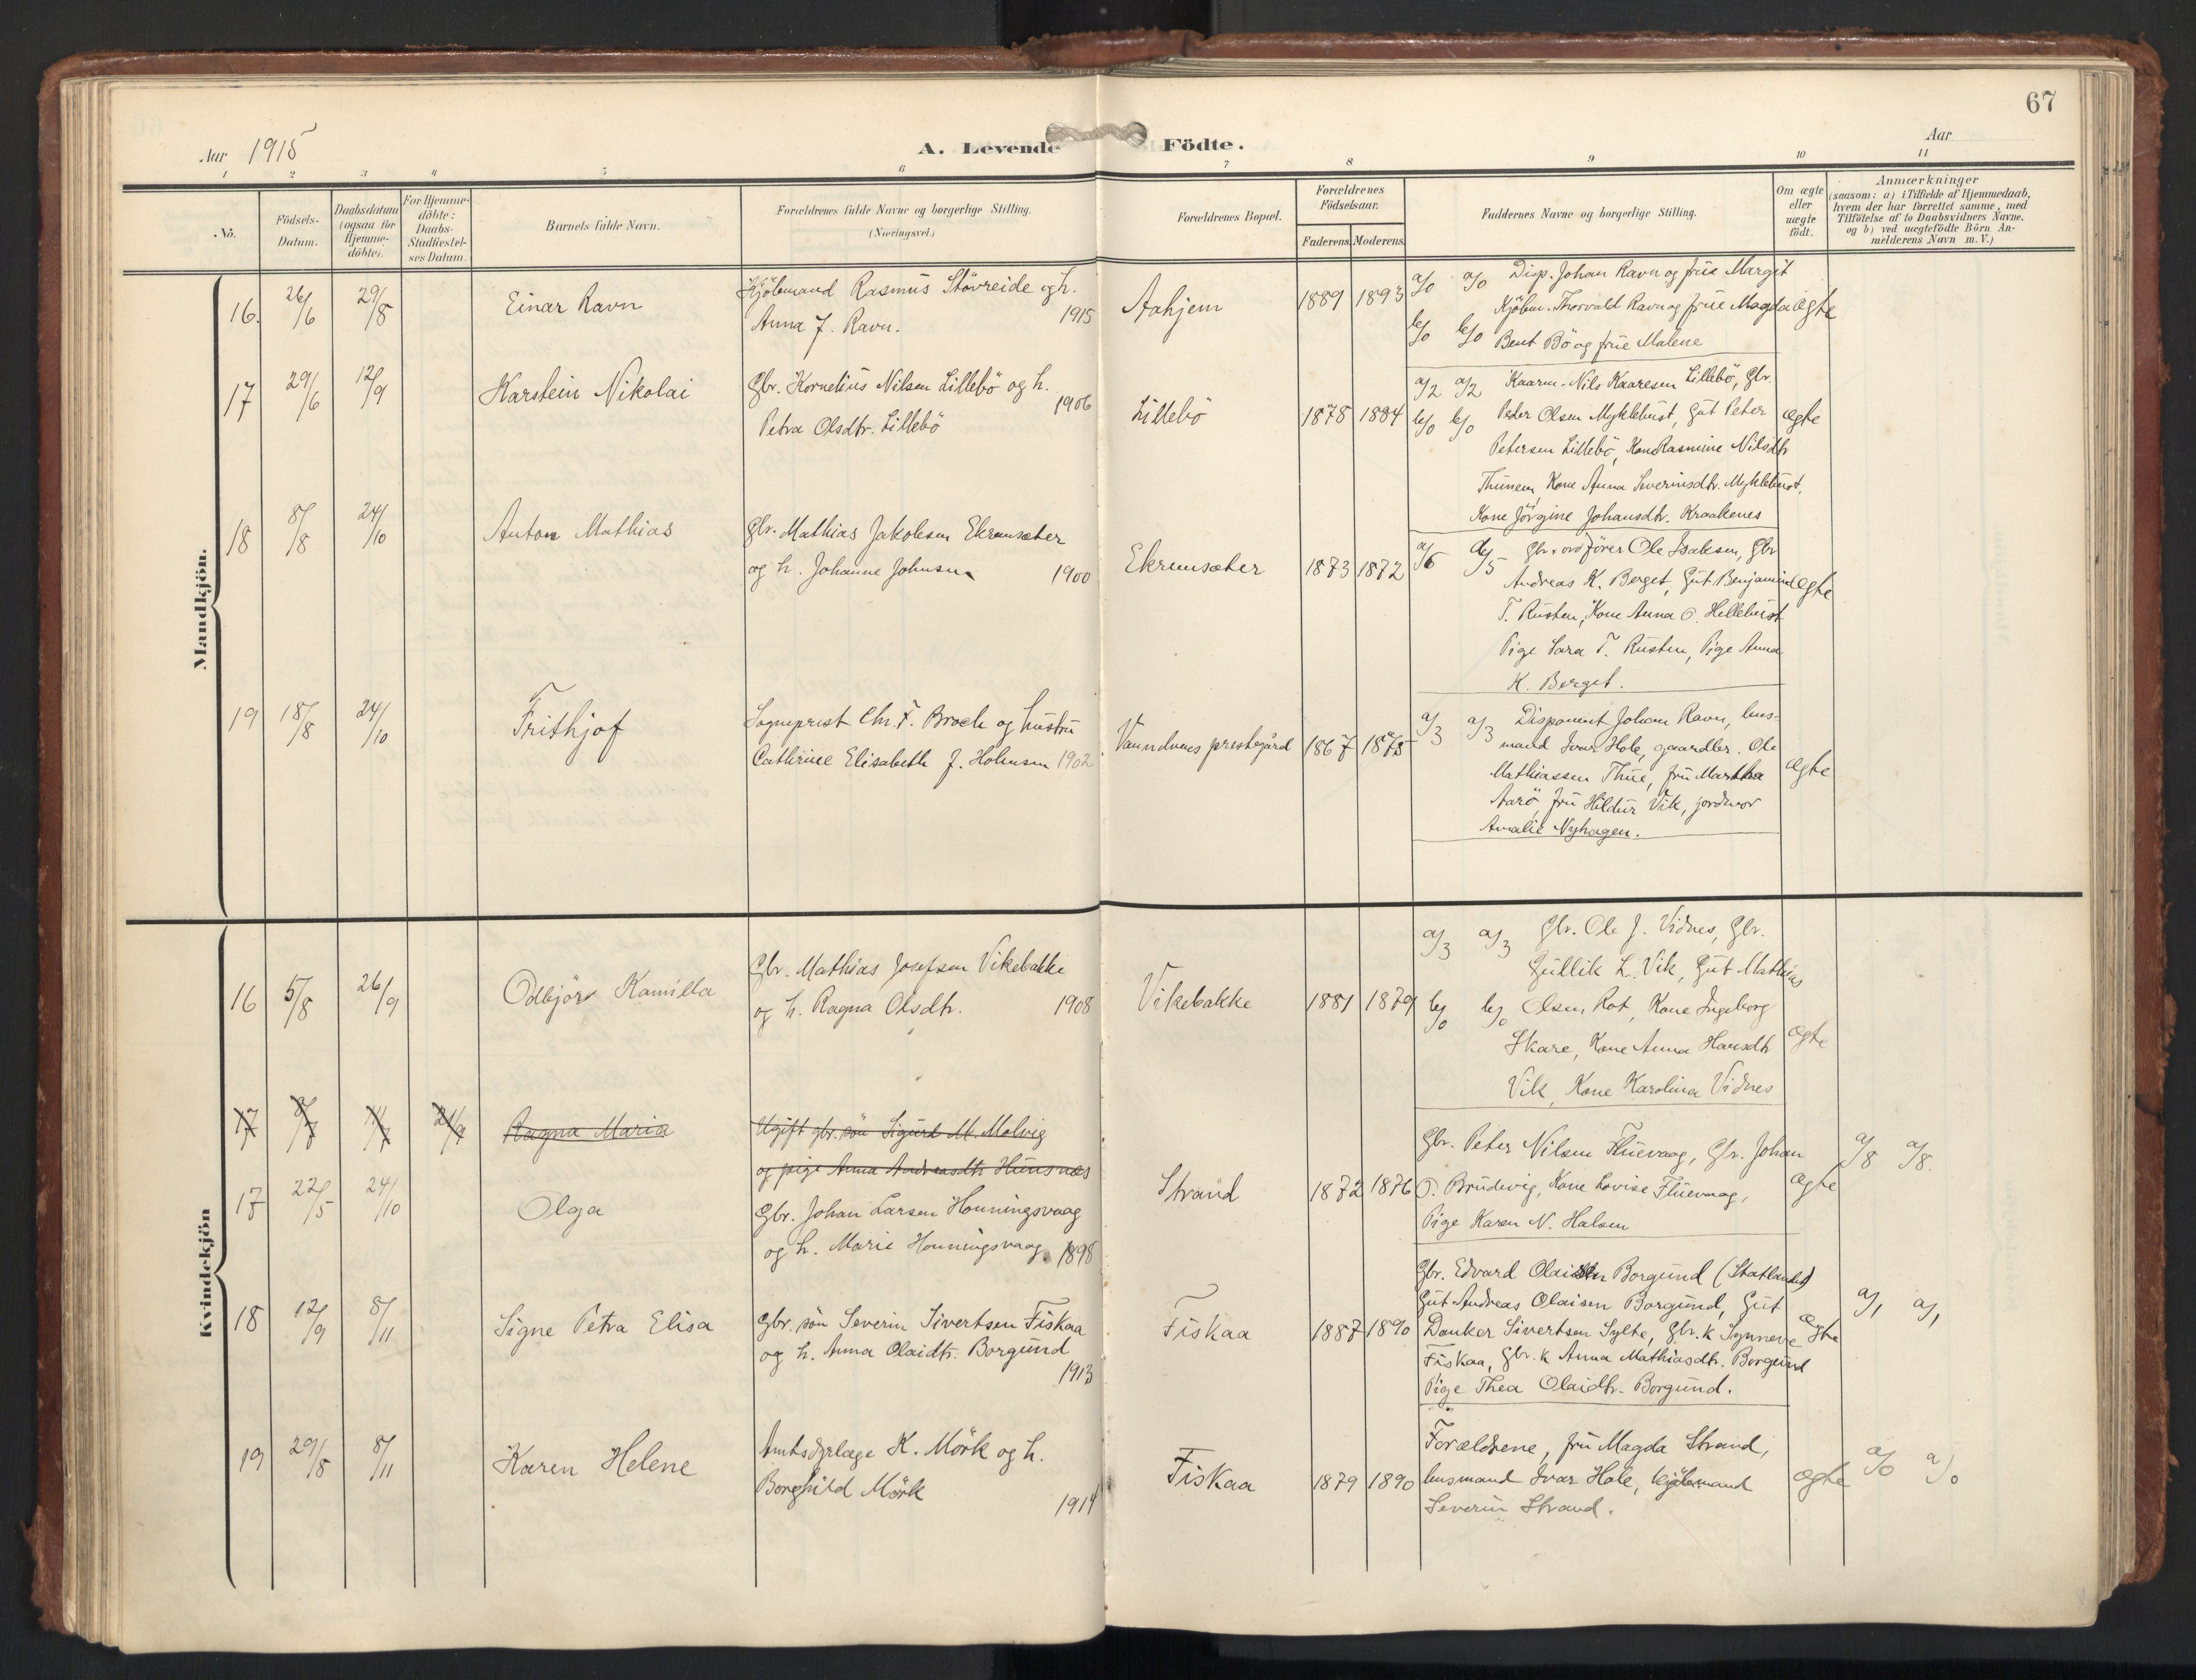 67
Aar 1915
A. Levende Födte.
Aar
1 2 3 4 5 6 7 8 9 10 11
Nô.
Födsels-Datum.
Daabsdatum (ogsaa for Hjemme-döbte).
For Hjemme-döbte: Daabs-Stadfæstel-ses Datum.
Barnets fulde Navn.
Forældrenes fulde Navne og borgerlige Stilling.
(Næringsvei.)
Forældrenes Bopæl.
Forældrenes Födselsaar.
Faderens. Moderens.
Faddernes Navne og borgerlige Stilling.
Om ægte eller uægte födt.
Anmærkninger
(saasom: a) i Tilfælde af Hjemmedaab,
hvem der har forrettet samme, med
Tilföielse af to Daabsvidners Navne.
og b) ved uægtefödte Börn An-
melderens Navn m. V.)
Mandkjön.
16. 26/6 29/8 Einar Ravn
Kjöbmand Rasmus Stövreide og h.
Anna J. Ravn. 1915
Aahjem 1889 1893
a/0 a/0 Disp. Johan Ravn og frue Margit
Kjöbm. Thorvald Ravn og frue Magda
b/0 b/0 Bent Bö og frue Malene
ægte
17 29/6 12/9 Karstein Nikolai
Gbr. Kornelius Nilsen Lillebö og h.
Petra Olsdtr. Lillebö 1906
Lillebö 1878 1884
a/2 a/2 Kaarm. Nils Kaaresen Lillebö, Gbr.
b/0 b/0 Peder Olsen Myklebust, Gut Peter
Petersen Lillebö, Kone Rasmine Nilsdtr
Thunem, Kone Anna Severinsdtr. Myklebust,
Kone Jörgine Johansdtr. Kraakenes
ægte
18 8/8 24/10 Anton Mathias
Gbr. Mathias Jakobsen Ekremsæter
og h. Johanne Johnsen 1900
Ekremsæter 1873 1872
Gbr. ordförer Ole Isaksen, Gbr
Andreas K. Berget, Gut Benjamin
T. Rusten, Kone Anna O. Hellebust
Pige Sara T. Rusten, Pige Anna
K. Berget.
ægte
19 18/8 24/10 Frithjof
Sogneprest Chr. F. Broch og hustru
Cathrine Elisabeth f. Holmsen 1902
Vanndvens prestegård 1867 1875
a/3 a/3 Disponent Johan Ravn, hus-
mand Ivar Hole, gaardbr. Ole
Mathiassen Thue, fru Martha
Aarö, fru Hildur Vik, jordmor
Amalie Nyhagen.
ægte
Kvindekjön
16 5/8 26/9 Odbjörg Kamilla
Gbr. Mathias Josefsen Vikebakke
og h. Ragna Olsdtr. 1908
Vikebakke 1881 1879
a/3 a/3 Gbr. Ole J. Vidnes, Gbr.
Gullik L. Vik, Gut Mathias
b/0 b/0 Olsen Rot, Kone Ingeborg
Skare, Kone Anna Hansdtr
Vik, Kone Karolina Vidnes
ægte
17 Ragna Maria
Ugift gbr. sön Sigurd M. Molvig
og pige Anna Andreasdtr Hunsnæs
17 22/5 24/10 Olga
Gbr. Johan Larsen Honningsvaag
og h. Marie Honningsvaag. 1898
Strand 1872 1876
Gbr. Peter Nilsen Fluevaag, Gbr. Johan
O. Brudevig, Kone Lovise Fluevaag,
Pige Karen N. Halsen
ægte a/8 a/8.
18 12/9 8/11 Signe Petra Elisa
Gbr. sön Severin Sivertsen Fiskaa
og h. Anna Olaidtr. Borgund
1913
Fiskaa 1887 1890
Gbr. Edvard Olaisen Borgund (Statlandet)
Gut Andreas Olaisen Borgund, Gut
Danker Sivertsen Sylte, Gbr. k Synneve
Fiskaa, Gbr. k Anna Mathiasdtr. Borgund
Pige Thea Olaidtr. Borgund.
ægte a/1 a/1
19 29/8 8/11 Karen Helene
Amtsdyrlæge K. Mörk og h.
Borghild Mörk 1914
Fiskaa 1879 1890
Forældrene, fru Magda Strand,
husmand Ivar Hole, kjöbmand
Severin Strand.
ægte a/0 a/0